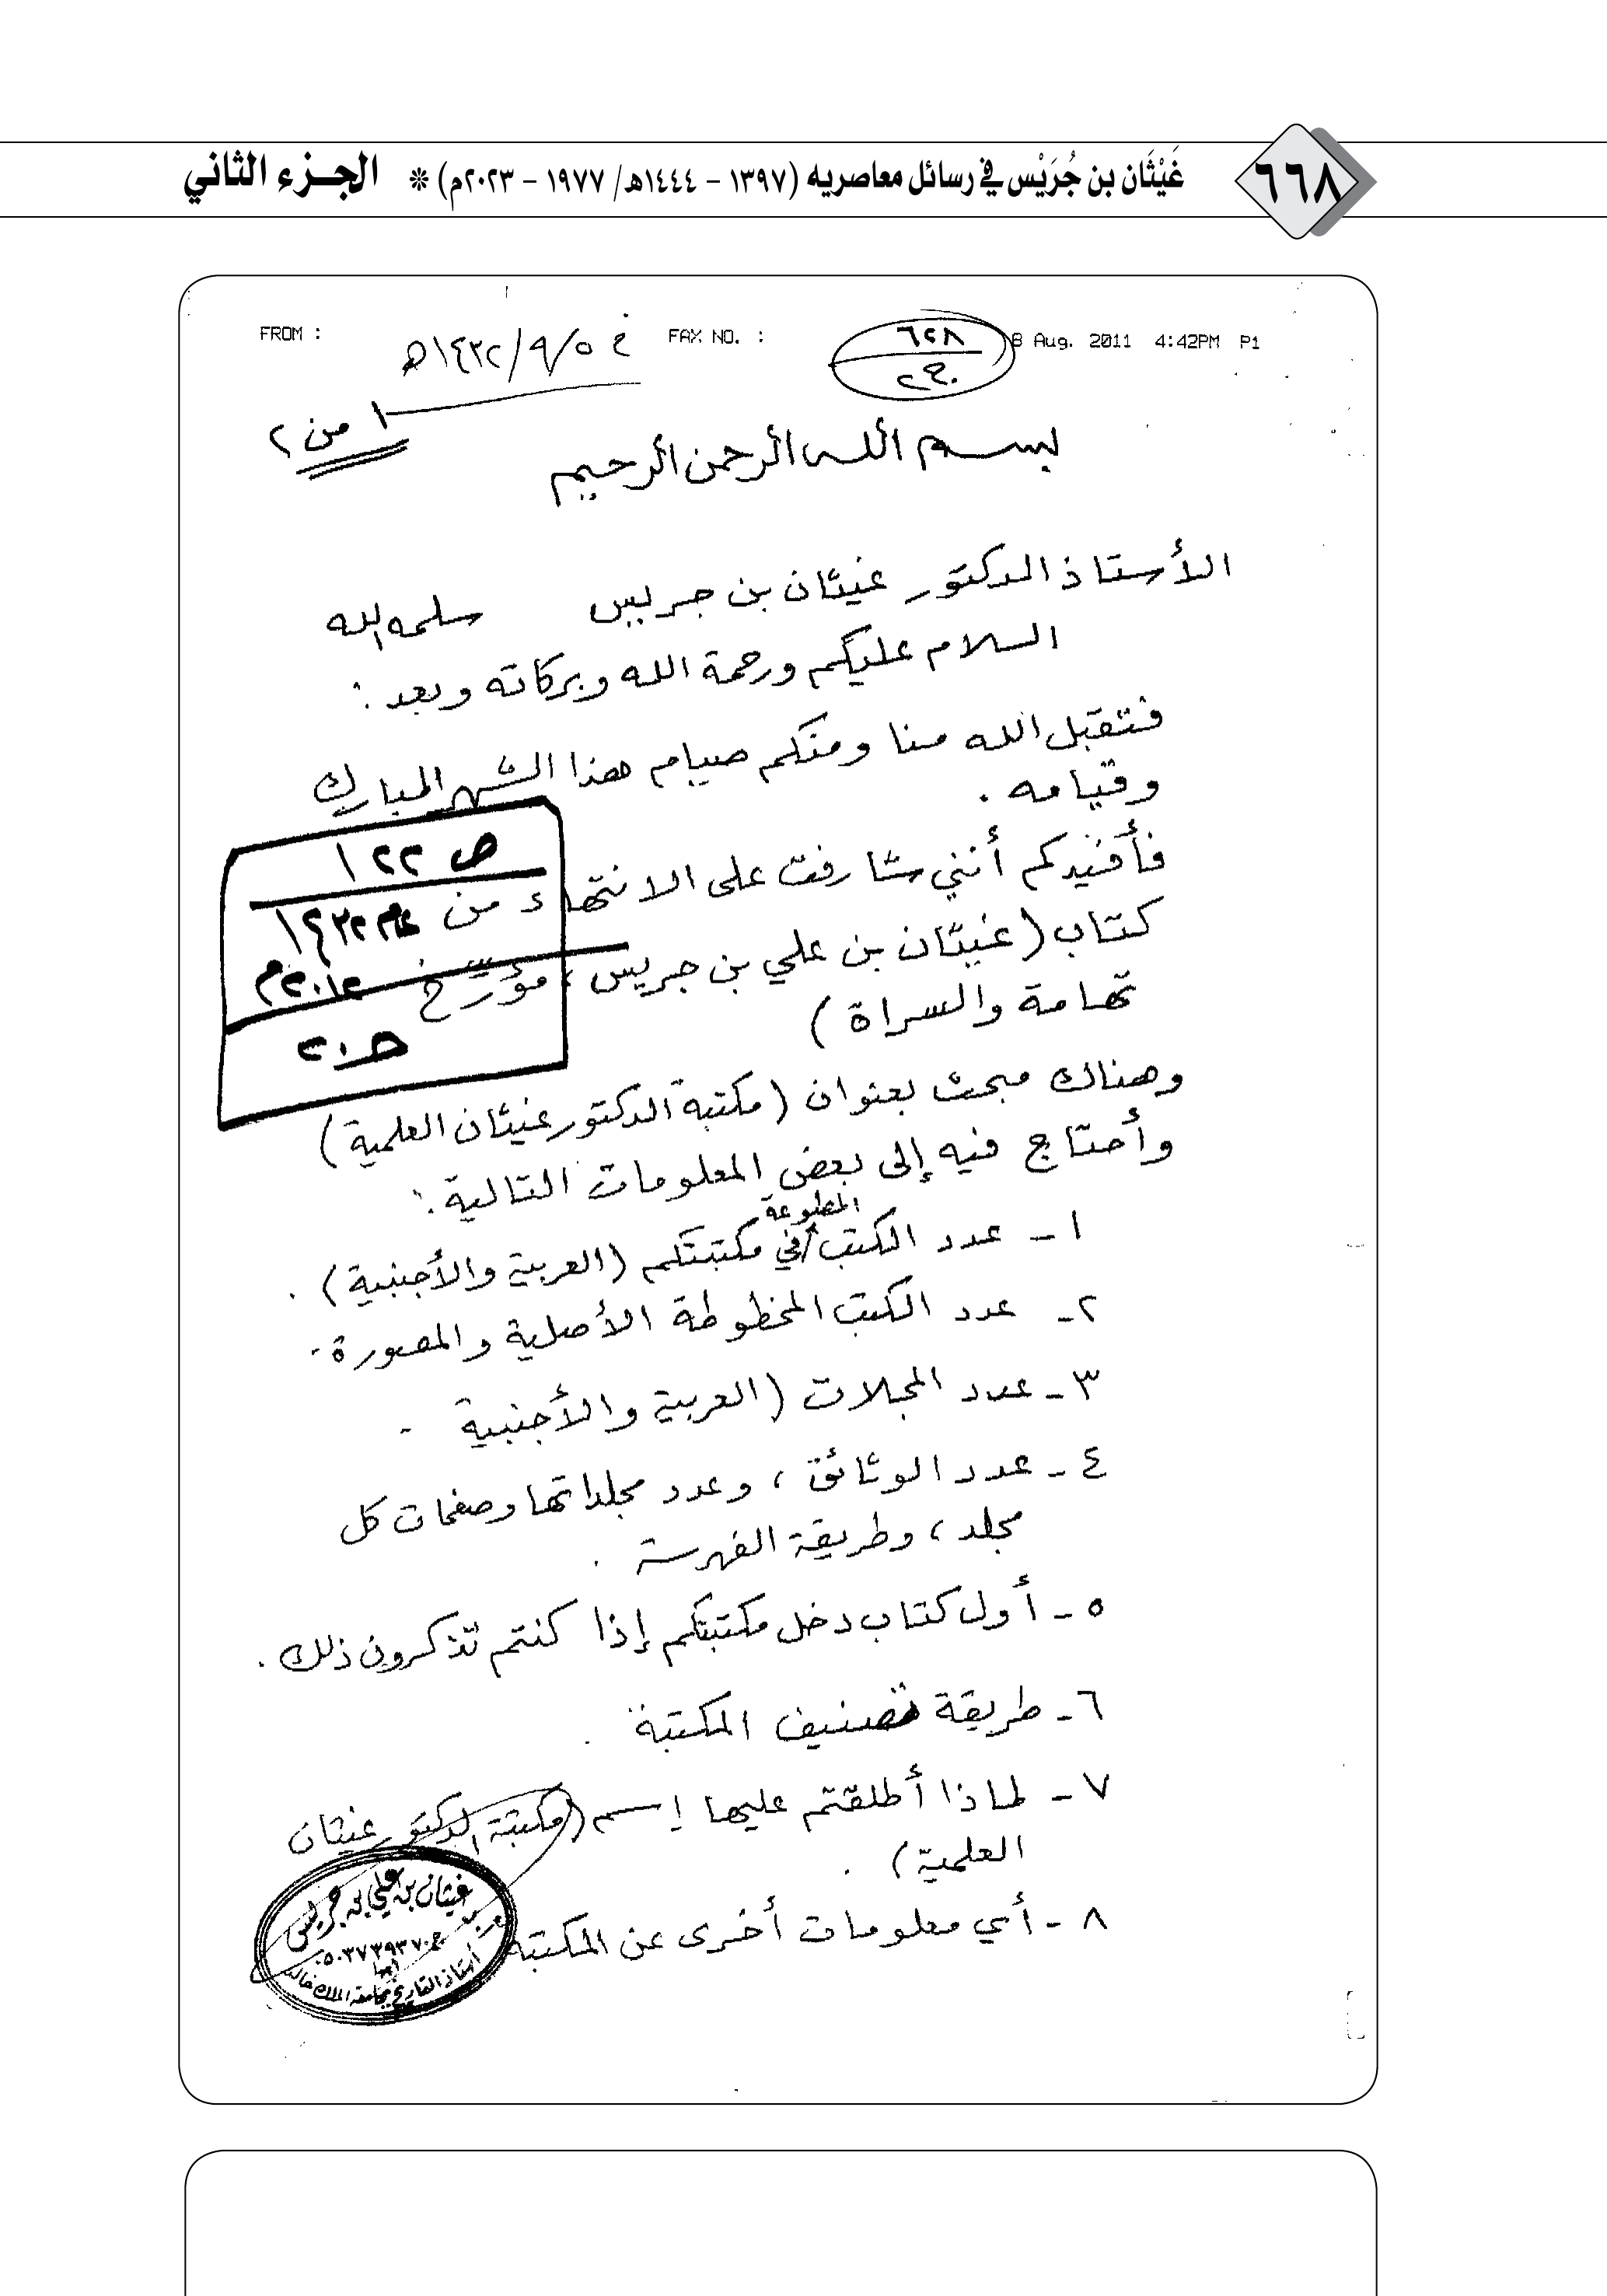 ٦٦٨
غَيْثَان بن جُرَيْس في رسائل معاصريه (١٣٩٧ – ١٤٤٤هـ/ ١٩٧٧ – ٢٠٢٣م) * الجـزء الثاني
FROM :
FAX NO. :
8 Aug. 2011 4:42PM P1
٦٢٨
١ من ٢
بسم الله الرحمن الرحيم
الأستاذ الدكتور غيثان بن جريس سلمه الله
السلام عليكم ورحمة الله وبركاته وبعد :
فتقبل الله منا ومنكم صيام هذا الشهر المبارك
وقيامه .
فأفيدكم أنني شارفت على الانتهاء من
كتاب (غيثان بن علي بن جريس ، مؤرّخ
تهامة والسراة )
ص ١٢٢
وهناك مبحث بعنوان (مكتبة الدكتور غيثان العلمية)
وأحتاج فيه إلى بعض المعلومات التالية :
١- عدد الكتب المطبوعة في مكتبتكم (العربية والأجنبية) .
٢- عدد الكتب المخطوطة الأصلية والمصورة .
٣- عدد المجلات (العربية والأجنبية .
٤- عدد الوثائق ، وعدد مجلداتها وصفحات كل
مجلد ، وطريقة الفهرسة .
٥- أول كتاب دخل مكتبتكم إذا كنتم تذكرون ذلك .
٦- طريقة تصنيف المكتبة .
٧- لماذا أطلقتم عليها إسم (مكتبة الدكتور غيثان
العلمية) .
٨- أي معلومات أخرى عن المكتبة
غيثان بن علي بن جريس
أبها
أستاذ التاريخ بجامعة الملك خالد